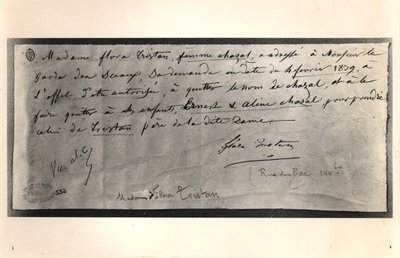 Madame flora Tristan, femme chazal, a adressé à Monsieur le
Garde des Sceaux, Sa demande en date du 4 février 1839, a
l'effet d'etre autorisée, à quitter le nom de chazal, et à le
faire quitter à Ses enfants, Ernest & aline chazal pour prendre
celui de Tristan père de la dite Dame.
flora Tristan
(Rue du Bac 100 bis)
Madame Flora Tristan